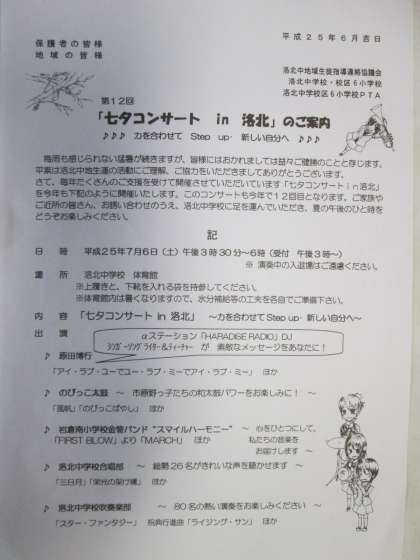 平成２５年６月吉日
保護者の皆様
地域の皆様
洛北中地域生徒指導連絡協議会
洛北中学校・校区６小学校
洛北中学校区６小学校ＰＴＡ
第１２回
「七夕コンサート in 洛北」のご案内
♪♪♪ 力を合わせて Step up・ 新しい自分へ ♪♪♪
梅雨も感じられない猛暑が続きますが、皆様にはおかれましては益々ご健勝のことと存じます。
平素は洛北中地生連の活動にご理解、ご協力をいただきましてありがとうございます。
さて、毎年たくさんのご支援を受けて開催させていただいています「七夕コンサートｉｎ洛北」
を今年も下記のように開催いたします。このコンサートも今年で１２回目となります。ご家族や
ご近所の皆さん、お誘い合わせのうえ、洛北中学校に足を運んでいただき、夏の午後のひと時を
どうぞお楽しみください。
記
日 時 平成２５年７月６日（土）午後３時３０分～６時（受付 午後３時～）
※ 演奏中の入退場はご遠慮ください。
場 所 洛北中学校 体育館
※上履きと、下靴を入れる袋を持参してください。
※体育館内は暑くなりますので、水分補給等の工夫を各自でご準備下さい。
内 容 「七夕コンサート in 洛北」 ～力を合わせて Step up・新しい自分へ～
出 演
αステーション「HARADISE RADIO」DJ
ｼﾝｶﾞｰｿﾝｸﾞﾗｲﾀｰ＆ﾃｨｰﾁｬｰ が 素敵なメッセージをあなたに！
♪ 原田博行
「アイ・ラブ・ユーでユー・ラブ・ミーでアイ・ラブ・ミー」 ほか
♪ のびっこ太鼓 ～ 市原野っ子たちの和太鼓パワーをお楽しみに！ ～
「風帆」「のびっこばやし」 ほか
♪ 岩倉南小学校金管バンド “スマイルハーモニー” ～ 心をひとつにして、
「FIRST BLOW」より「MARCH」 ほか 私たちの音楽を
お届けします ～
♪ 洛北中学校合唱部 ～ 総勢２６名がきれいな声を聴かせます ～
「三日月」「栄光の架け橋」 ほか
♪ 洛北中学校吹奏楽部 ～ ８０名の熱い演奏をお楽しみください ～
「スター・ファンタジー」 祝典行進曲「ライジング・サン」 ほか